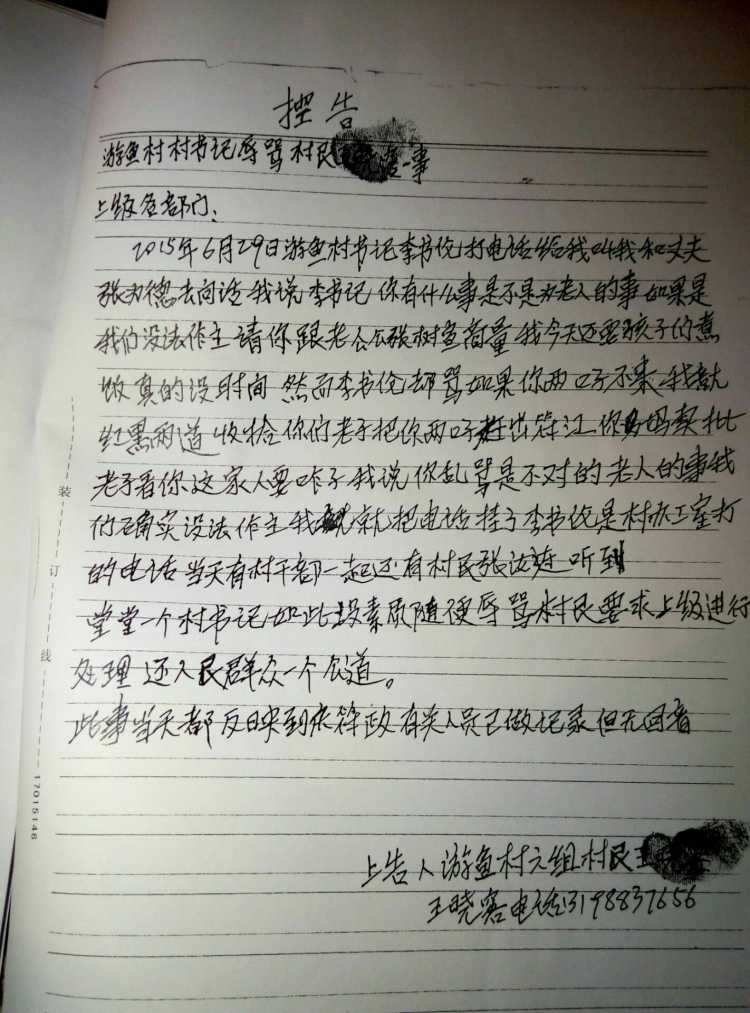 控告
游鱼村村书记辱骂村民一事
上级各部门:
2015年6月29日游鱼村书记李书伦打电话给我叫我和丈夫
张为德去问话我说李书记你有什么事是不是为老人的事如果是
我们没法作主请你跟老公公张树鱼商量我今天还要孩子的煮
饭真的没时间然而李书伦却骂如果你两口子不来我就
红黑两道收拾你们老子把你两口子赶出符江你妈卖批
老子看你这家人要咋子我说你乱骂是不对的老人的事我
们确实没法作主我就把电话挂了李书伦是村办工室打
的电话当天有村干部一起还有村民张汝莲听到
堂堂一个村书记如此没素质随便辱骂村民要求上级进行
处理还人民群众一个公道。
此事当天都反映到 政有关人员已做记录但无回音
上告人游鱼村六组村民王
王晓容电话13198837656
装
订
线
17015146